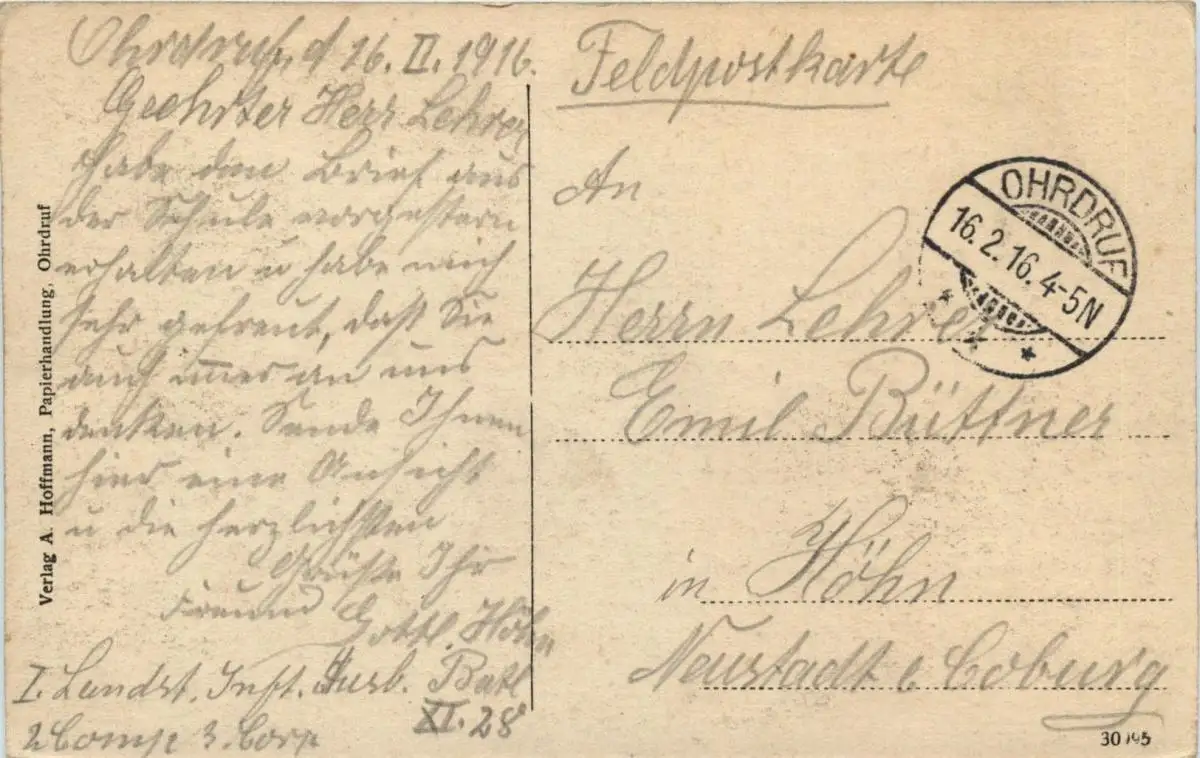 Ohrdruf, d 16. II. 1916.
Geehrter Herr Lehrer
habe den Brief aus
der Schule vorgestern
erhalten u habe mich
sehr gefreut, daß Sie
auch immer an uns
denken. Sende Ihnen
hier eine Ansicht
u die herzlichsten
Grüße Ihr
Freund
Gottl. Höhn
I. Landst. Inft. Ausb. Batl
XI. 28
2 Comp 3. Corp
Verlag A. Hoffmann, Papierhandlung, Ohrdruf
Feldpostkarte
An
Herrn Lehrer
Emil Büttner
in Höhn
Neustadt Coburg
OHRDRUF
16.2.16.4-5N
30195